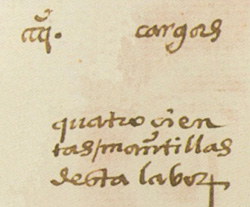 cargas
quatro çien
tas/mantillas
desta labor